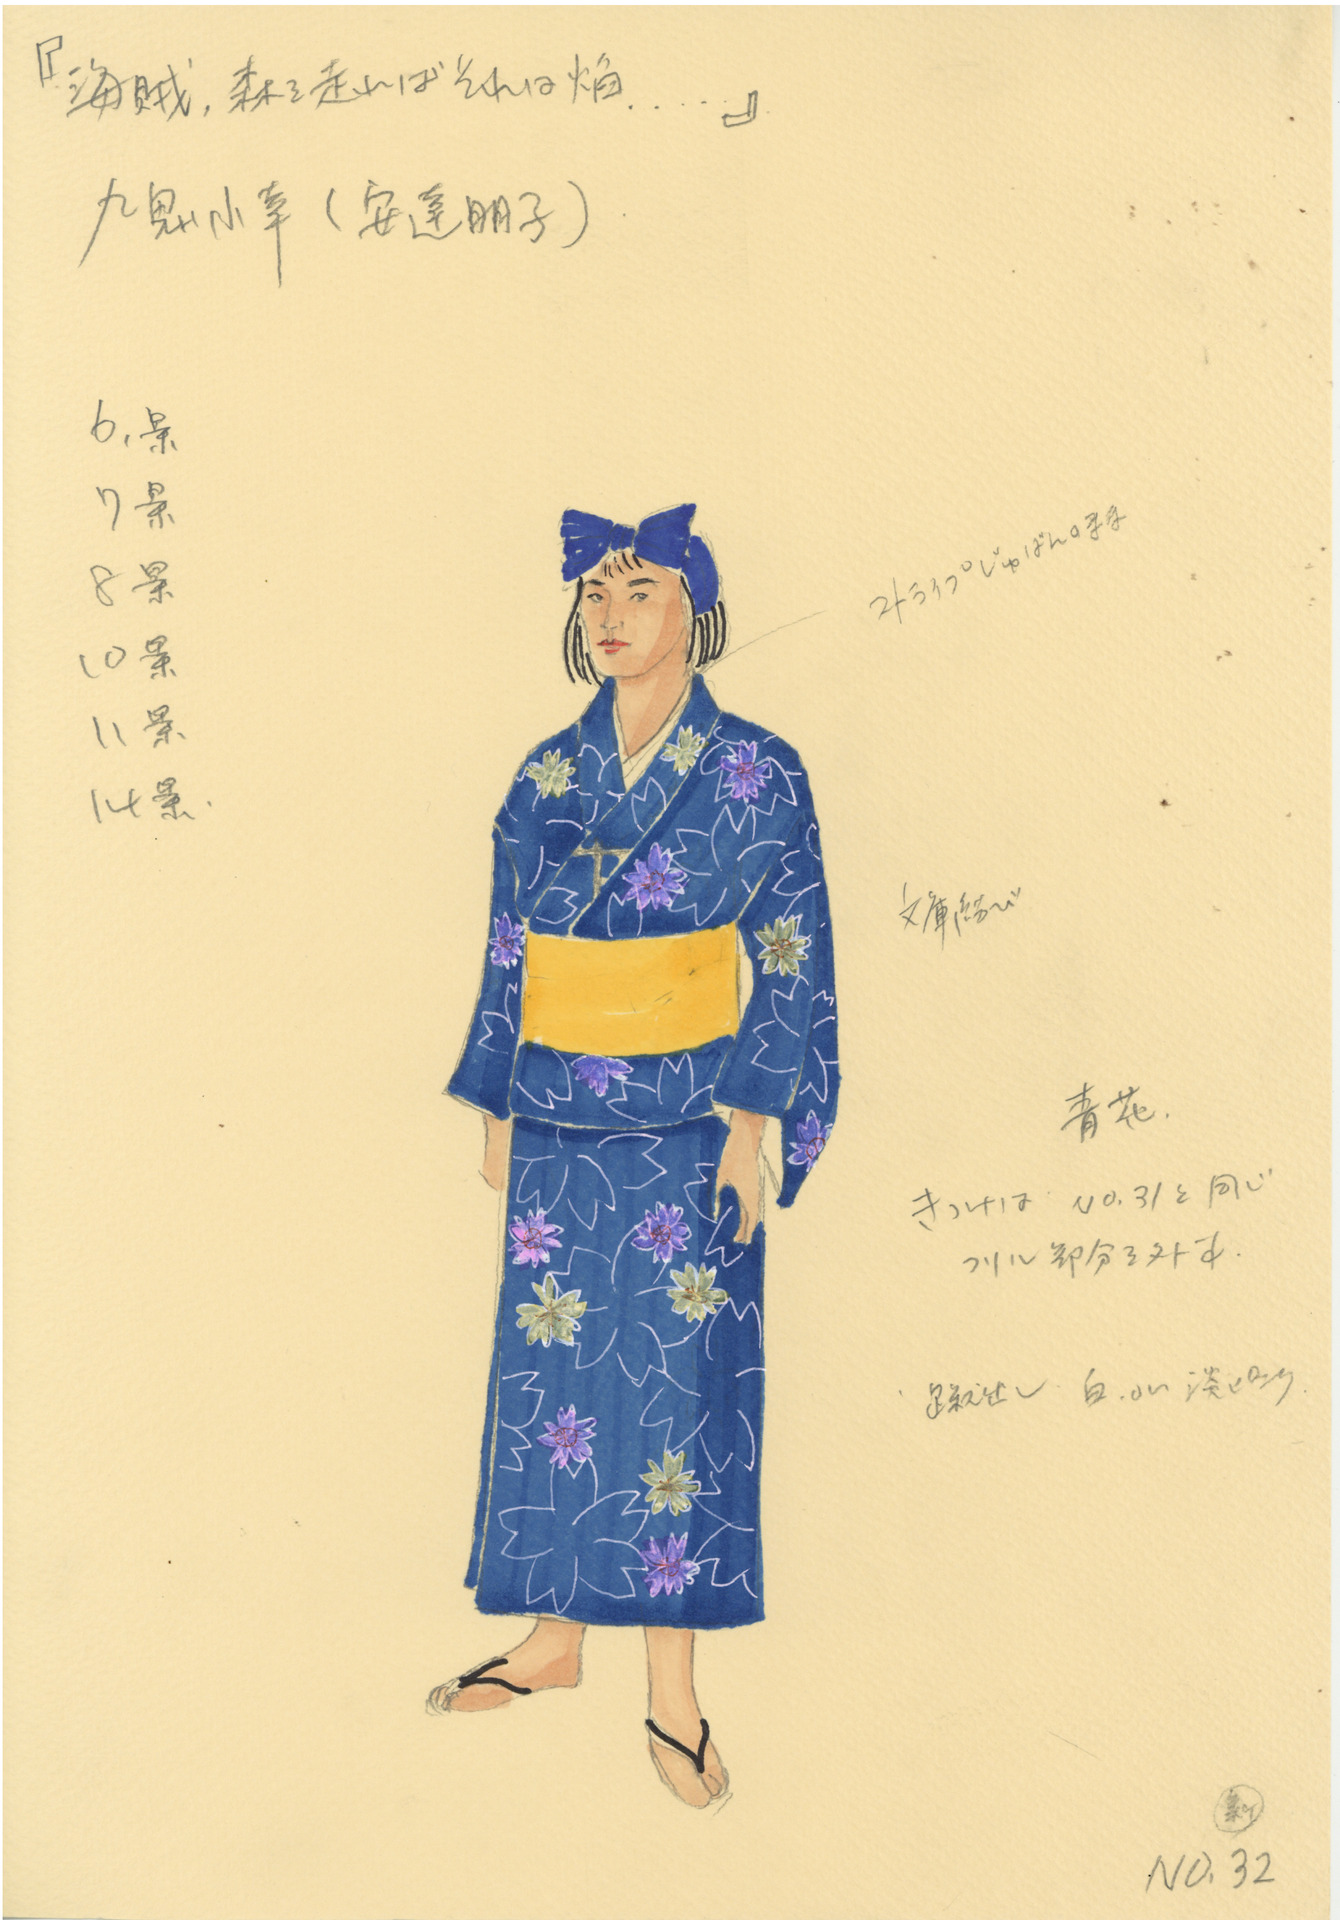 『海賊、森を走ればそれは焔......』
九鬼小幸(安達朋子)
6.景
7景
8景
10景
11景
14景.
ストライプじゅばんのまま
文庫結び
青花.
きつけは NO.31と同じ
フリル部分を外す.
蹴出し 白.or 淡ピンク.
新
NO.32